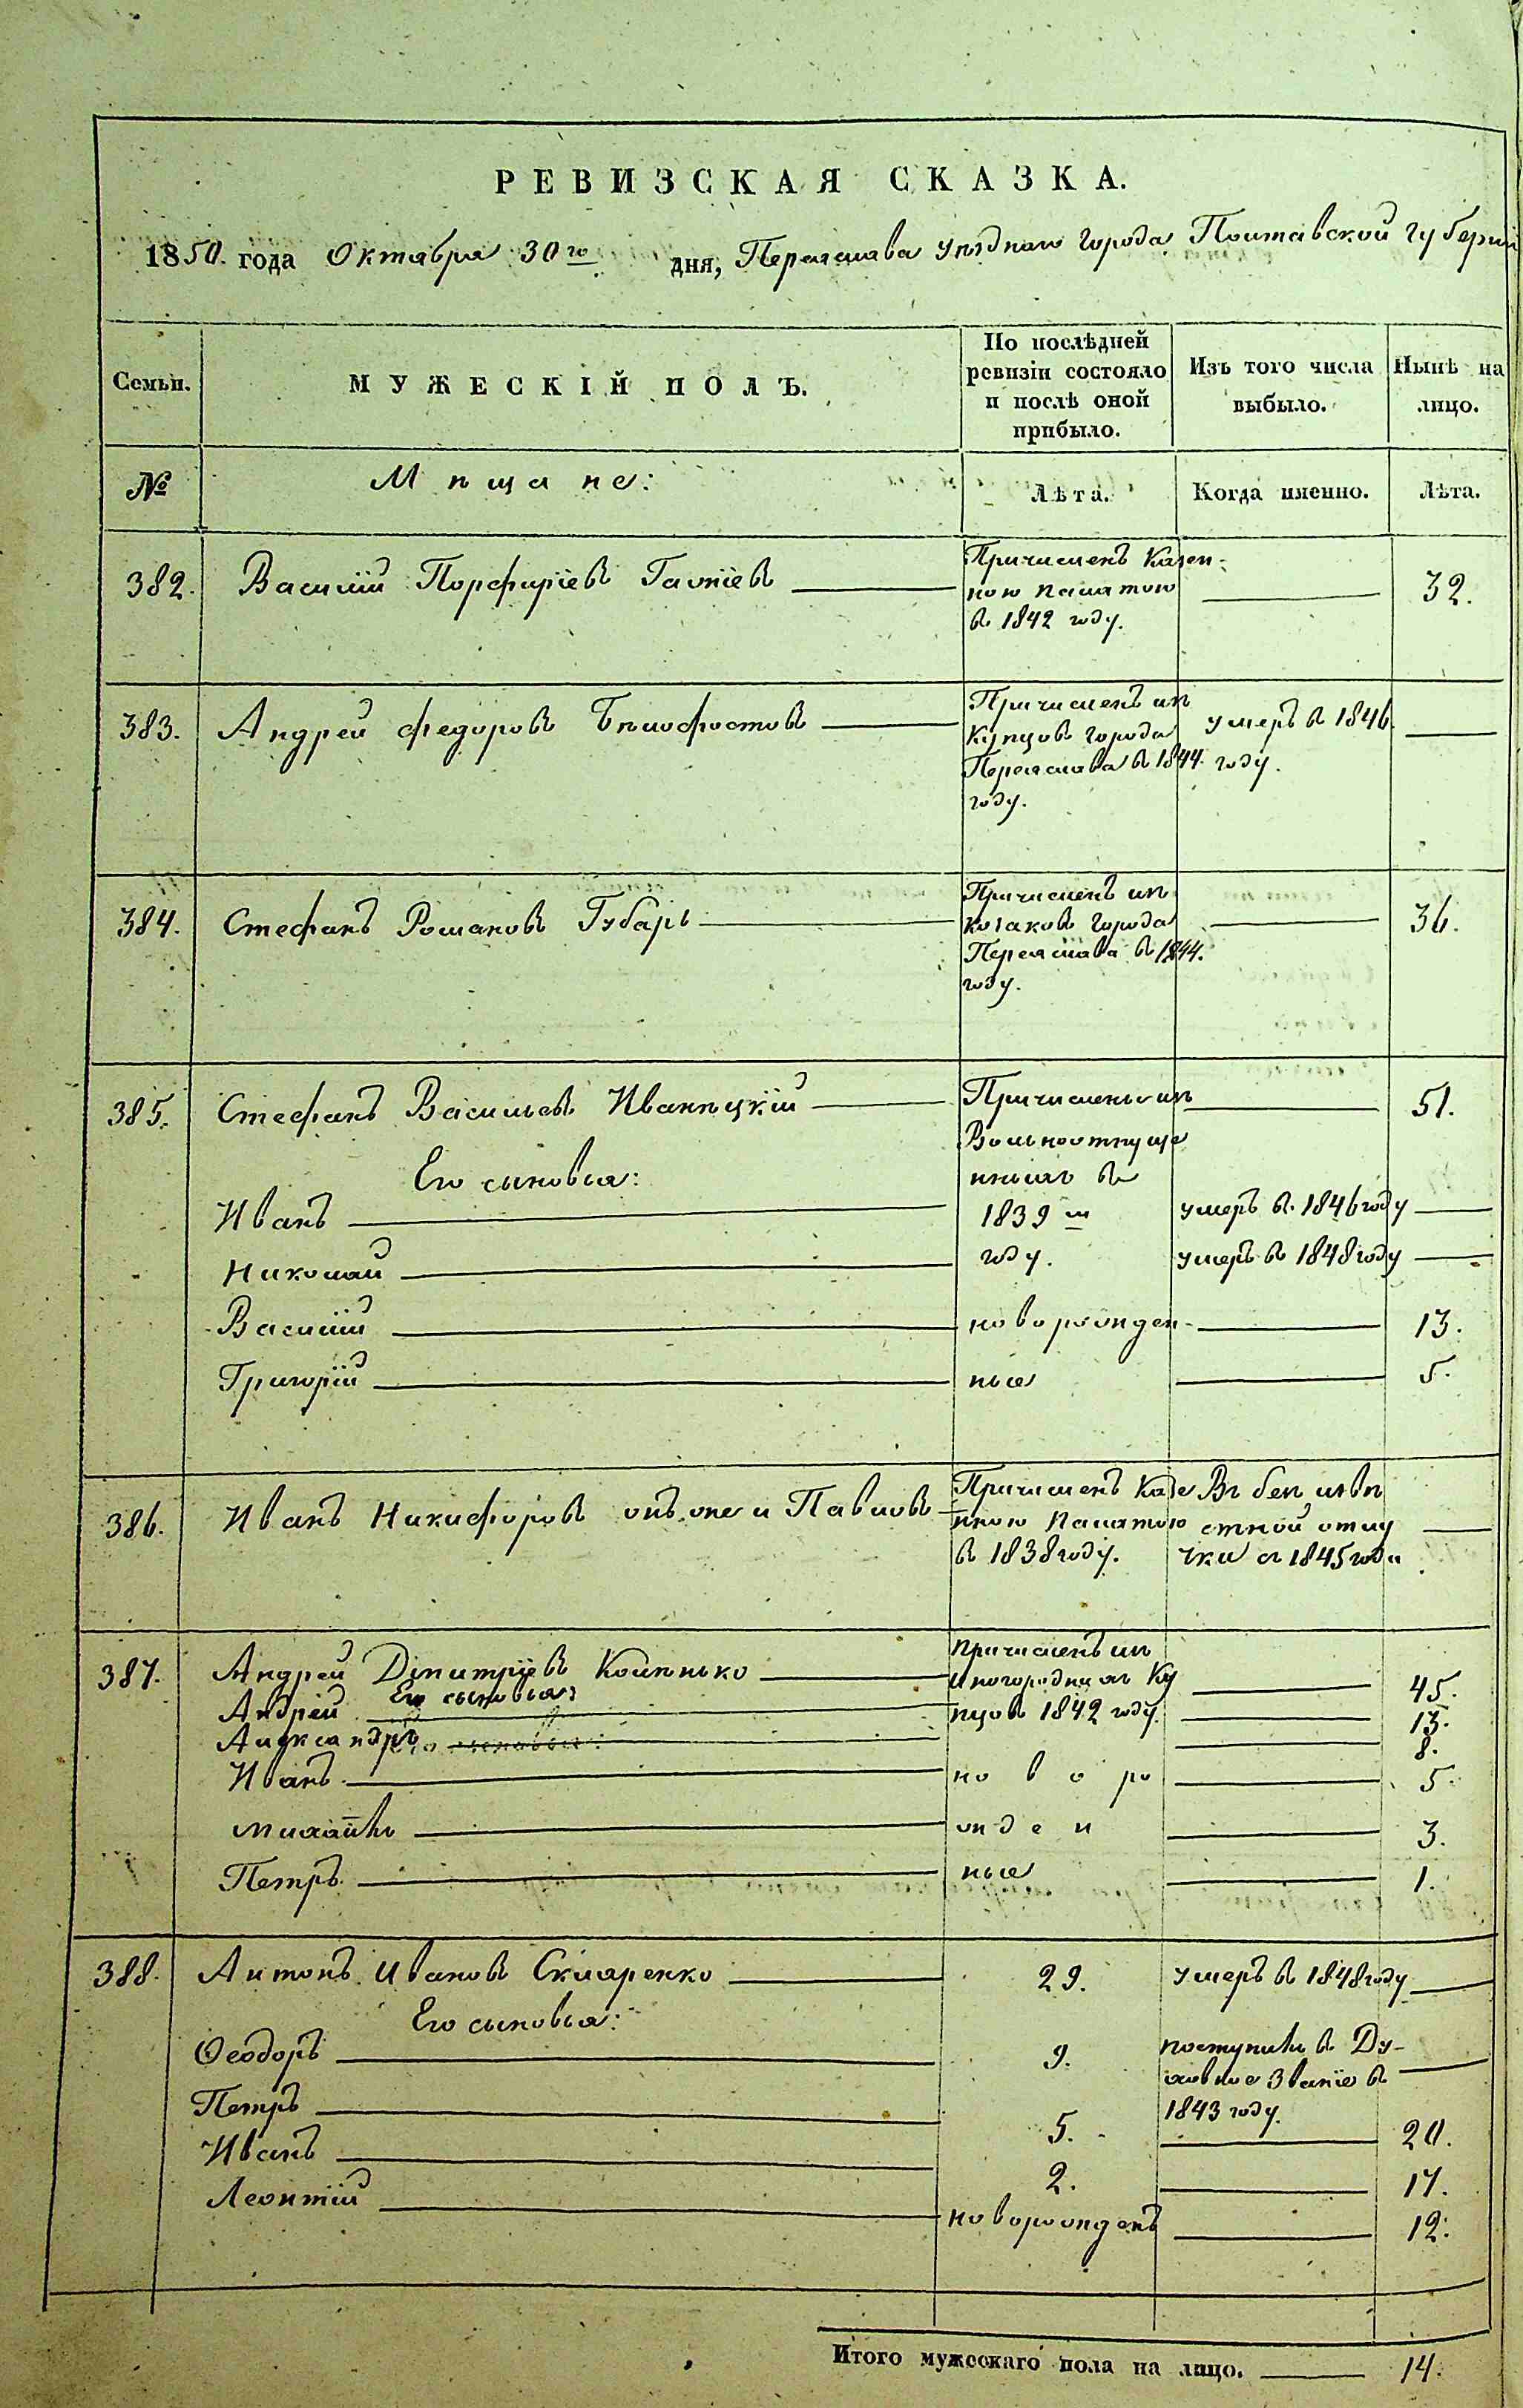 РЕВИЗСКАЯ СКАЗКА.
1850. года Октября 30го дня, Переяслава уѣзднаго города Полтавской губерніи
Семьи.
МУЖЕСКІЙ ПОЛЪ.
По послѣдней
ревизіи состояло
и послѣ оной
прибыло.
Изъ того числа
выбыло.
Нынѣ на
лицо.
№
Мѣщане:
Лѣта.
Когда именно.
Лѣта.
382. Василій Порфиріевъ
Причисленъ Казен-
ною палатою
въ 1842 году.
32.
383. Андрей Федоровъ
Причисленъ изъ
Купцовъ города
Переяслава въ 1844.
году.
умеръ въ 1846.
году.
384. Стефанъ Романовъ Губарь
Причисленъ изъ
козаковъ города
Переяслава въ 1844.
году.
36.
385. Стефанъ Васильевъ Иваницкій
Причислены изъ
51.
Вольноотпуще
Его сыновья:
нныхъ въ
Иванъ
1839 м
умеръ въ 1846 году
Николай
году.
умеръ въ 1848 году
Василій
новорожден-
13.
Григорій
ные
5.
386. Иванъ Никифоровъ онъ же и Павловъ
Причисленъ Казе
нною палатою
въ 1838 году.
Въ безъизвѣ
стной отлу
чки съ 1845 года
387. Андрей Дімитріевъ
Причисленъ изъ
иногородныхъ Ку
45.
Его сыновья:
Андрей
пцовъ 1842 году.
13.
Александръ
Его сыновья:
8.
Иванъ
новоро
5.
Михаилъ
жден
3.
Петръ
ные
1.
388. Антонъ Ивановъ Скляренко
29.
умеръ въ 1848 году
Его сыновья:
Ѳеодоръ
9.
поступилъ въ Ду-
ховное званіе въ
1843 году.
Петръ
5.
20.
Иванъ
2.
17.
Леонтій
новорожденъ
12.
Итого мужескаго пола на лицо. 14.